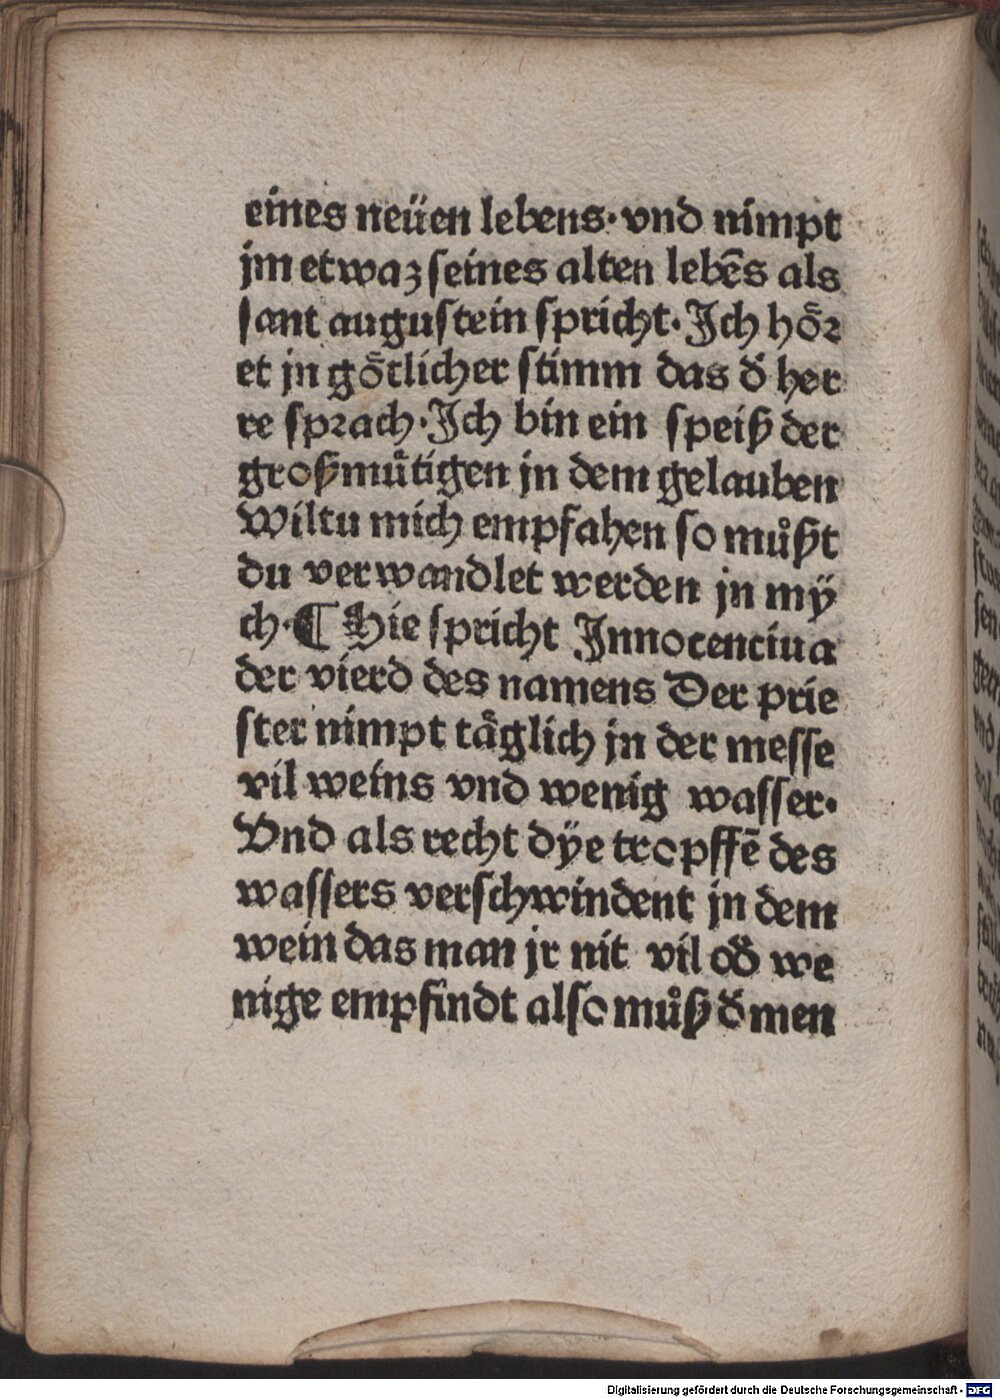 eines neüen lebens· vnd nimpt
jm etwaz ſeines alten lebēs als
ſant auguſtein ſpricht· Ich hoͤꝛ
et jn goͤtlicher ſtimm das d̄ her
re ſpꝛach· Ich bin ein ſpeiß der
großmuͤtigen jn dem gelauben
Wiltu mich empfahen ſo muͦßt
du verwandlet werden jn mÿ
ch· ¶ Hie ſpricht Innocenciua
der vierd des namens Der prie
ſter nimpt taͤglich jn der meſſe
vil weins vnd wenig waſſer·
Vnd als recht dÿe tropffē des
waſſers verſchwindent jn dem
wein das man jr nit vil od̄ we
nige empfindt alſo muͦß d̄ men
Digitalisierung gefördert durch die Deutsche Forschungsgemeinschaft - DFG